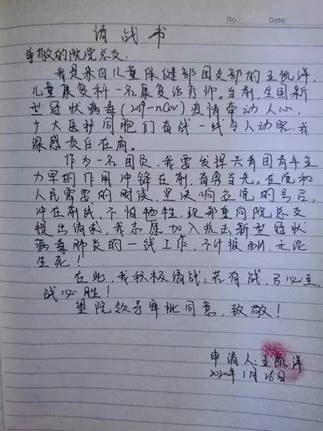 No.:
Date:
请战书
尊敬的院总支:
我是来自儿童保健部团支部的王凯洋,
儿童康复科一名康复治疗师。当前,全国新
型冠状病毒(2019-nCov)疫情牵动人心,
广大医护同胞们奋战一线令人动容,我
深感责任在肩。
作为一名团员,我要发挥共青团生
力军的作用冲锋在前,奋勇当先。在院和
人民需要的时候,坚决响应党的号召,
冲在前线,不怕牺牲,现郑重向院总支
提出请求,我志愿加入抗击新型冠状
病毒肺炎的一线工作,不计报酬,无论
生死!
在此,我积极请战:若有战,召必至,
战必胜!
望院领导审批同意,致敬!
申请人:王凯洋
2020年1月26日